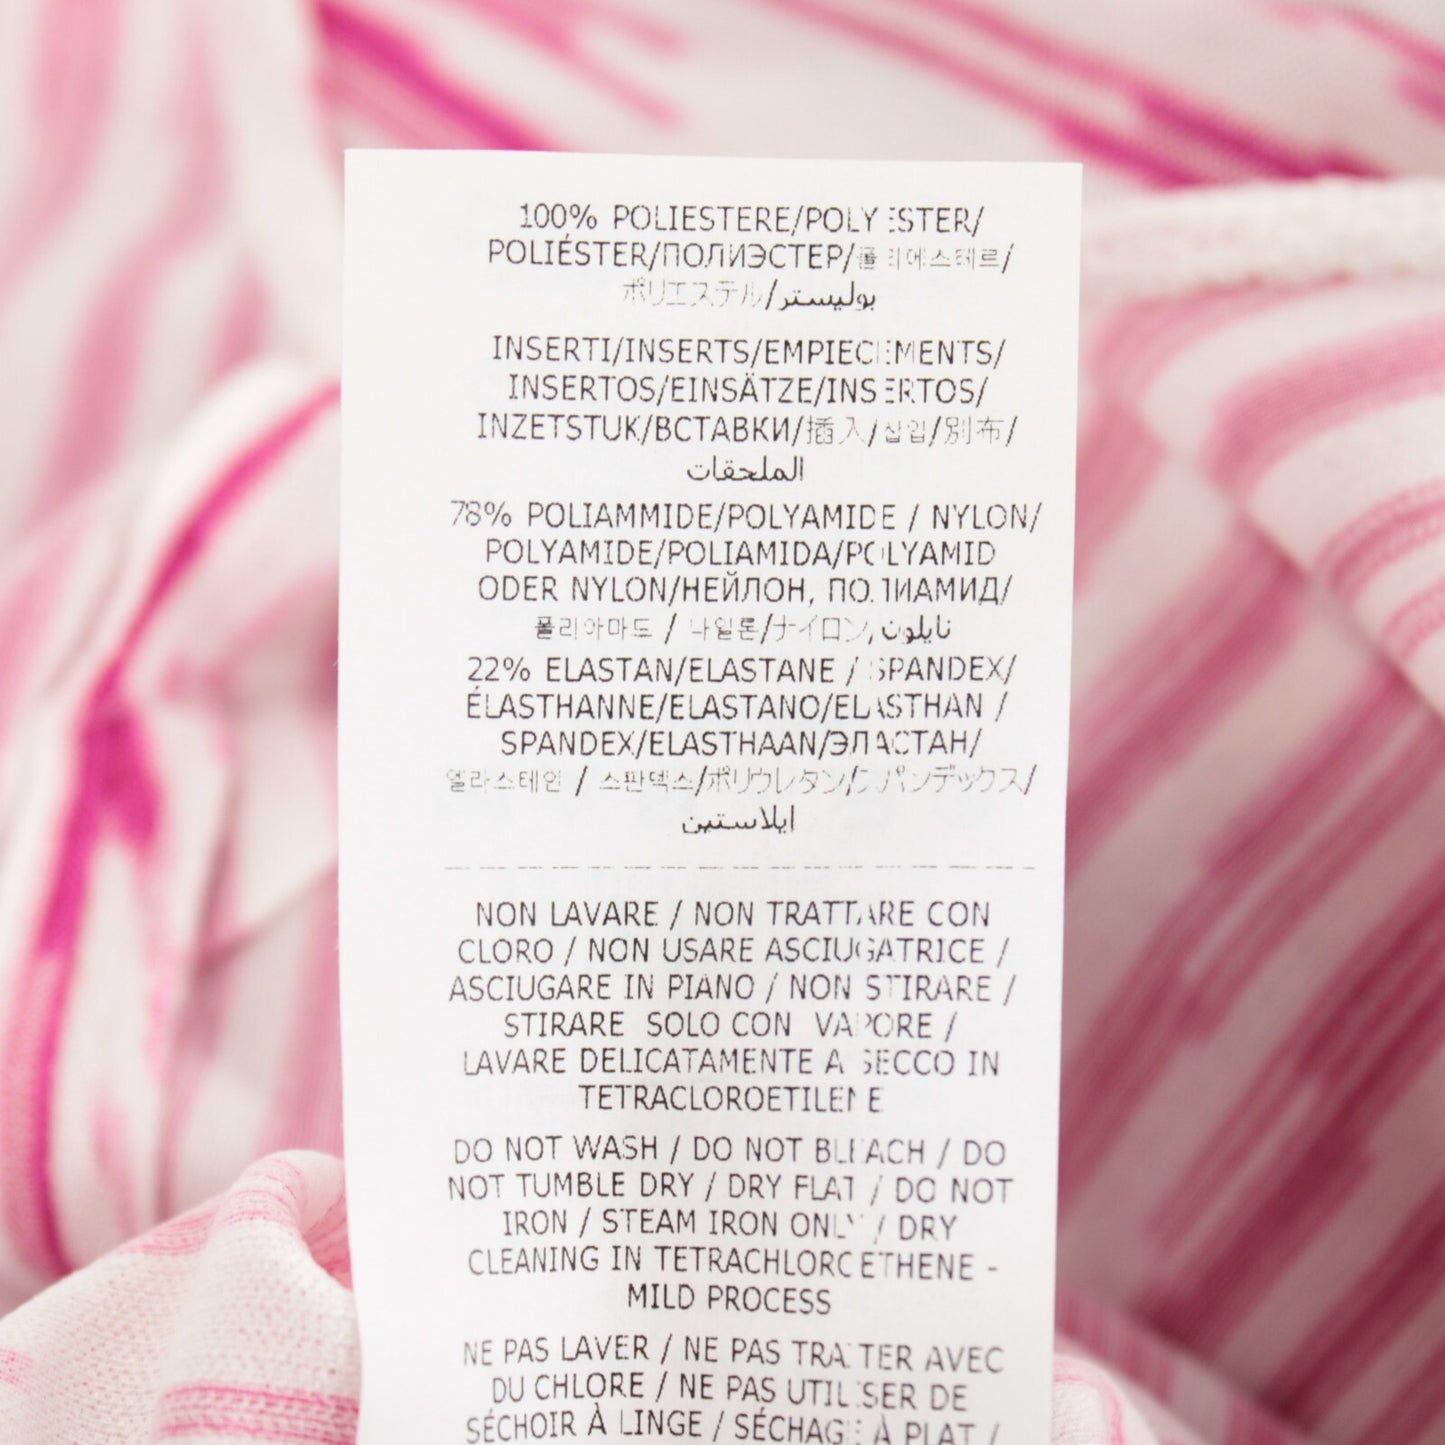 100% POLIESTERE/POLYESTER/
POLIÉSTER/ПОЛИЭСТЕР/폴리에스테르/
ポリエステル/بوليستر
INSERTI/INSERTS/EMPIECEMENTS/
INSERTOS/EINSÄTZE/INSERTOS/
INZETSTUK/ВСТАВКИ/插入/삽입/別布/
الملحقات
78% POLIAMMIDE/POLYAMIDE / NYLON/
POLYAMIDE/POLIAMIDA/POLYAMID
ODER NYLON/НЕЙЛОН, ПОЛИАМИД/
폴리아마드 / 나일론/ナイロン/نايلون
22% ELASTAN/ELASTANE / SPANDEX/
ÉLASTHANNE/ELASTANO/ELASTHAN /
SPANDEX/ELASTHAAN/ЭЛАСТАН/
엘라스테인 / 스판덱스/ポリウレタン/スパンデックス/
ايلاستين
NON LAVARE / NON TRATTARE CON
CLORO / NON USARE ASCIUGATRICE /
ASCIUGARE IN PIANO / NON STIRARE /
STIRARE SOLO CON VAPORE /
LAVARE DELICATAMENTE A SECCO IN
TETRACLOROETILENE
DO NOT WASH / DO NOT BLEACH / DO
NOT TUMBLE DRY / DRY FLAT / DO NOT
IRON / STEAM IRON ONLY / DRY
CLEANING IN TETRACHLOROETHENE -
MILD PROCESS
NE PAS LAVER / NE PAS TRAITER AVEC
DU CHLORE / NE PAS UTILISER DE
SÉCHOIR À LINGE / SÉCHAGE À PLAT /